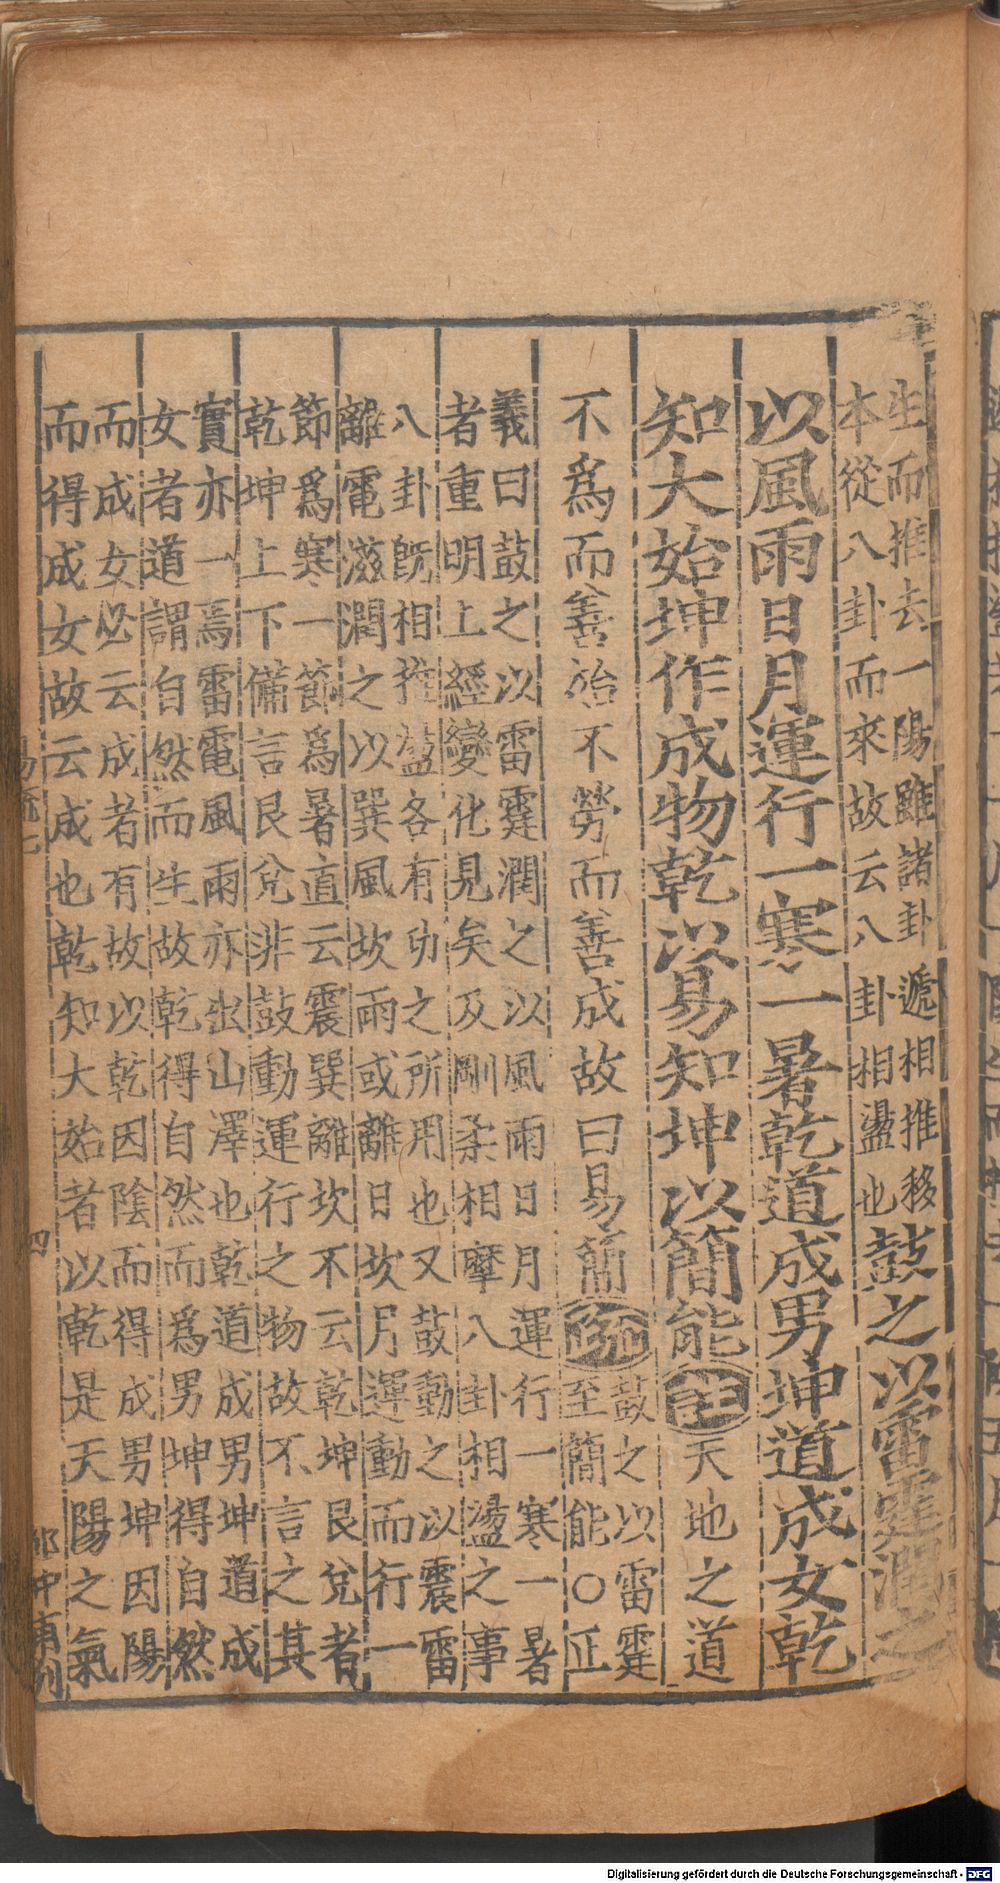 生而推去一陽雖諸卦遞相推移
本從八卦而來故云八卦相盪也
鼓之以雷霆潤之
以風雨日月運行一寒一暑乾道成男坤道成女乾
知大始坤作成物乾以易知坤以簡能
註
天地之道
不為而善始不勞而善成故曰易簡
疏
鼓之以雷霆
至簡能○正
義曰鼓之以雷霆潤之以風雨日月運行一寒一暑
者重明上經變化見矣及剛柔相摩八卦相盪之事
八卦旣相推盪各有功之所用也又鼓動之以震雷
離電滋潤之以巽風坎雨或離日坎月運動而行一
節爲寒一節爲暑直云震巽離坎不云乾坤艮兌者
乾坤上下備言艮兌非鼓動運行之物故不言之其
實亦一焉雷電風雨亦出山澤也乾道成男坤道成
女者道謂自然而生故乾得自然而爲男坤得自然
而成女必云成者有故以乾因陰而得成男坤因陽
而得成女故云成也乾知大始者以乾是天陽之氣
易疏七
四
Digitalisierung gefördert durch die Deutsche Forschungsgemeinschaft - DFG